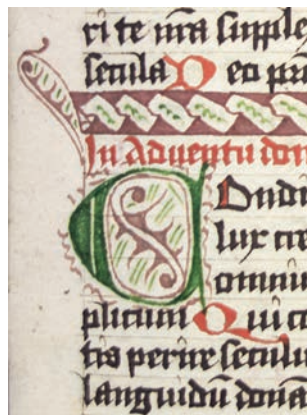 ri te nr̄a supple
secula D eo pr̄
In Adventu don
C Ondi
lux cre
omniu
plicum Q ui co
tis perire seculū
languidū dona